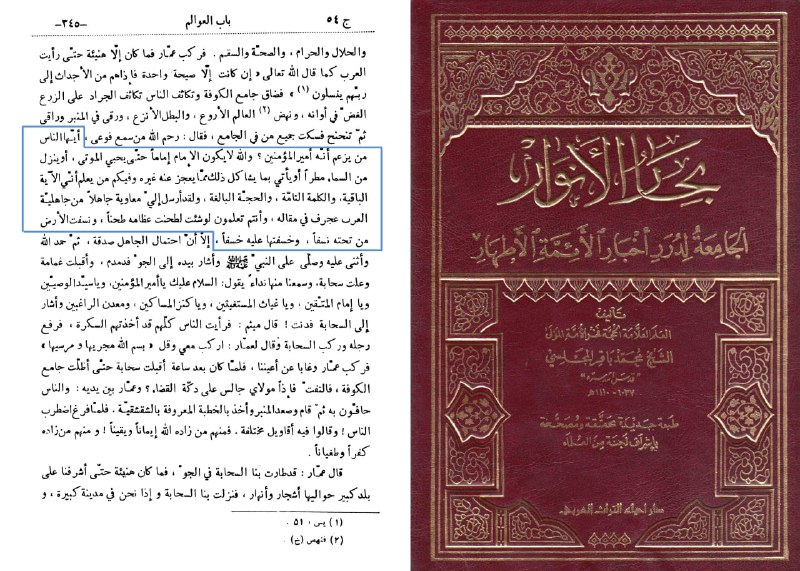 ج ٥٤
باب العوالم
-٣٤٥-
والحلال والحرام ، والصحّة والسقم . فركب عمّار فما كان إلّا هنيئة حتّى رأيت
العرب كما قال الله تعالى « إن كانت إلّا صيحة واحدة فإذاهم من الأجداث إلى
ربّهم ينسلون (١) » فضاق جامع الكوفة وتكاثف الناس تكاثف الجراد على الزرع
الغضّ في أوانه ، ونهض (٢) العالم الأروع ، والبطل الأنزع ، ورقى في المنبر وراقى
ثمّ تنحنح فسكت جميع من في الجامع ، فقال : رحم الله من سمع فوعى ، أيّها الناس
من يزعم أنّه أميرالمؤمنين ؟ والله لايكون الإمام إماماً حتّى يحيي الموتى ، أوينزل
من السماء مطراً أويأتي بما يشاكل ذلك ممّا يعجز عنه غيره وفيكم من يعلم أنّي الآية
الباقية، والكلمة التامّة ، والحجّة البالغة ، ولقدأرسل إليّ معاوية جاهلاً من جاهليّة
العرب عجرف في مقاله ، وأنتم تعلمون لوشئت لطحنت عظامه طحناً ، ونسفت الأرض
من تحته نسفاً ، وخسفتها عليه خسفاً ، إلّا أنّ احتمال الجاهل صدقة ، ثمّ حمد الله
وأثنى عليه وصلّى على النبيّ ﷺ وأشار بيده إلى الجوّ فدمدم ، وأقبلت غمامة
وعلت سحابة، وسمعنا منها نداءً يقول: السلام عليك ياأميرالمؤمنين، وياسيّدالوصيّين
ويا إمام المتّقين ، ويا غياث المستغيثين ، وياكنزالمساكين ، ومعدن الراغبين وأشار
إلى السحابة فدنت ! قال ميثم : فرأيت الناس كلّهم قد أخذتهم السكرة ، فرفع
رجله وركب السحابة وقال لعمّار : اركب معي وقل « بسم الله مجريها و مرسيها »
فركب عمّار وغابا عن أعيننا ، فلمّا كان بعد ساعة أقبلت سحابة حتّى أظلّت جامع
الكوفة ، فالتفتّ فإذاً مولاي جالس على دكّة القضاء ؟ وعمّار بين يديه : والناس
حافّون به ثمّ قام وصعدالمنبر وأخذ بالخطبة المعروفة بالشقشقيّة . فلمّافرغ اضطرب
الناس ! وقالوا فيه أقاويل مختلفة . فمنهم من زاده الله إيماناً ويقيناً ! و منهم من زاده
كفراً وطغياناً .
قال عمّار : قدطارت بنا السحابة في الجوّ ، فما كان هنيئة حتّى أشرفنا على
بلد كبير حواليها أشجار وأنهار ، فنزلت بنا السحابة و إذا نحن في مدينة كبيرة ، و
(١) يس ، ٥١ .
(٢) فنهض (خ) .
بحار الأنوار
الجامعة لدرر أخبار الأئمة الأطهار
تأليف
العلم العلامة الحجة فخر الأمة المولى
الشيخ محمد باقر المجلسي
" قدس سره "
١٠٣٧ - ١١١٠ هـ
طبعة جديدة محققة ومصححة
بإشراف لجنة من العلماء
دار احياء التراث العربي